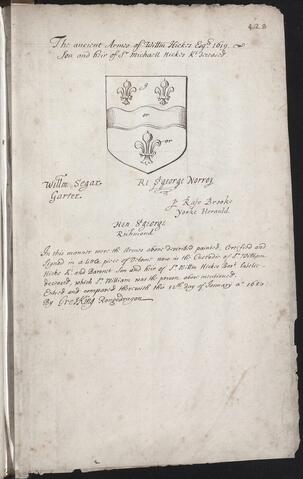 428
The ancient Armes of Willm Hickes Esqr. 1619. &
Son and heir of Sr. Michaell Hickes Kt. deceased.
or
or
Willm. Segar.
Garter.
Ri: St george Norroy
p Rafe Brooke
Yorke Herauld.
Hen: St george
Richmond.
In this manner were the Armes above described painted, Crested and
Signed in a little piece of Velame now in the Custodie of Sr. William
Hicks Kt. and Baronet Son and heir of Sr. Willm Hickes Bart. lately
deceased, which Sr. William was the person above mentioned.
Entred and compared therewith this 12th. day of January Ao. 168
By Gre: King Rougedragon